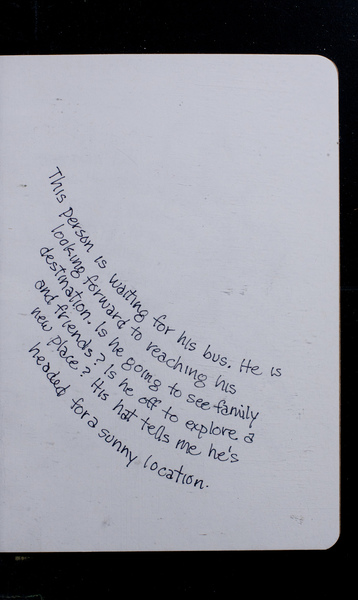 This person is waiting for his bus. He is
looking forward to reaching his
destination. Is he going to see family
and friends? Is he off to explore a
new place? His hat tells me he's
headed for a sunny location.